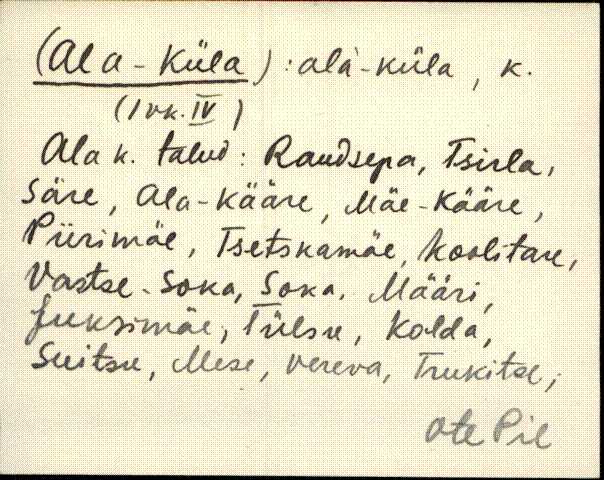 (Ala-Küla): alà-küla, k.
(1 vk. IV)
Ala k. talud: Raudsepa, Tsirla,
Säre, Ala-Kääre, Mäe-Kääre,
Piirimäe, Tsetskamäe, Koolitare,
Vastse-Soka, Soka, Määri,
Juksimäe, Tülsu, Kolda,
Suitsu, Mese, Vereva, Trukitse,
Ote Pil